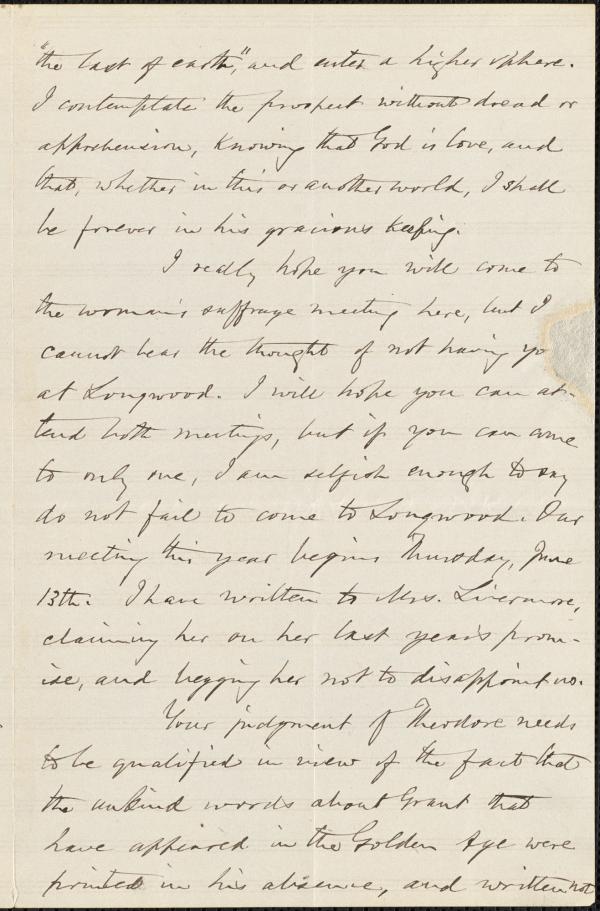 "the last of earth," and enter a higher sphere.
I contemplate the prospect without dread or
apprehension, knowing that God is love, and
that, whether in this or another world, I shall
be forever in his gracious keeping.
I really hope you will come to
the woman's suffrage meeting here, but I
cannot bear the thought of not having yo
at Longwood. I will hope you can at-
tend both meetings, but if you can come
to only one, I am selfish enough to say
do not fail to come to Longwood. Our
meeting this year begins Thursday, June
13th. I have written to Mrs. Livermore,
claiming her on her last year's prom-
ise, and begging her not to disappoint us.
Your judgment of Theodore needs
to be qualified in view of the fact that
the unkind words about Grant that
have appeared in the Golden Age were
printed in his absence, and written not